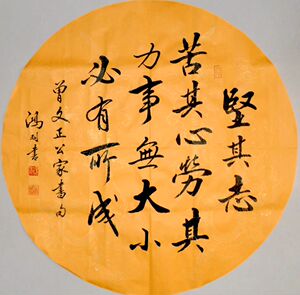 堅其志
苦其心勞其
力事無大小
必有所成
曾文正公家書句
鴻剛書